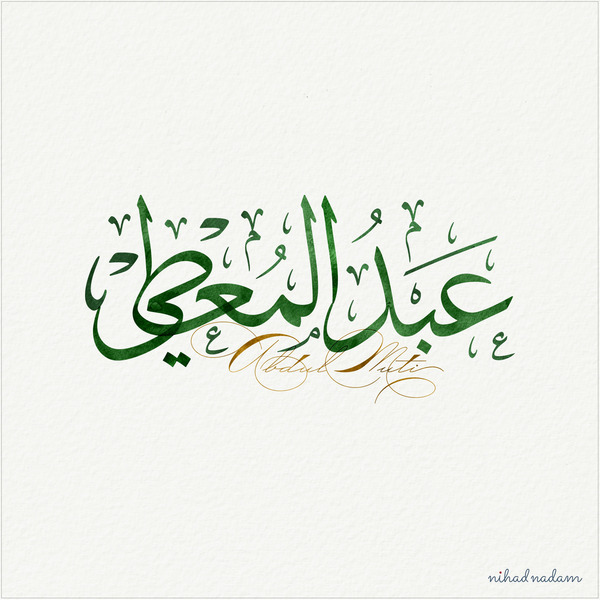 عَبْدُ الْمُعْطِي
Abdul Muti
nihad nadam